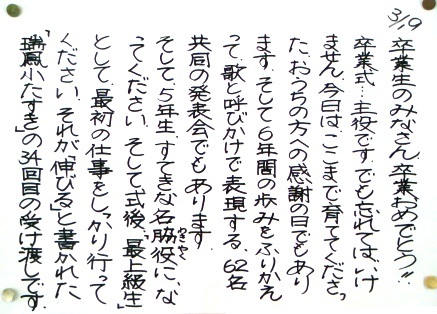 3/19
卒業生のみなさん、卒業おめでとう!!
卒業式…主役です。でも忘れてはいけ
ません。今日は、ここまで育ててくださっ
た、おうちの方への感謝の日でもあり
ます。そして6年間の歩みをふりかえ
って、歌と呼びかけで表現する、62名
共同の発表会でもあります。
そして、5年生。すてきな名脇役に、な
わきやく
ってください。そして式後、「最上級生」
として、最初の仕事をしっかり行って
ください。それが「伸びる」と書かれた
「瑞鳳小たすき」の34回目の受け渡しです。